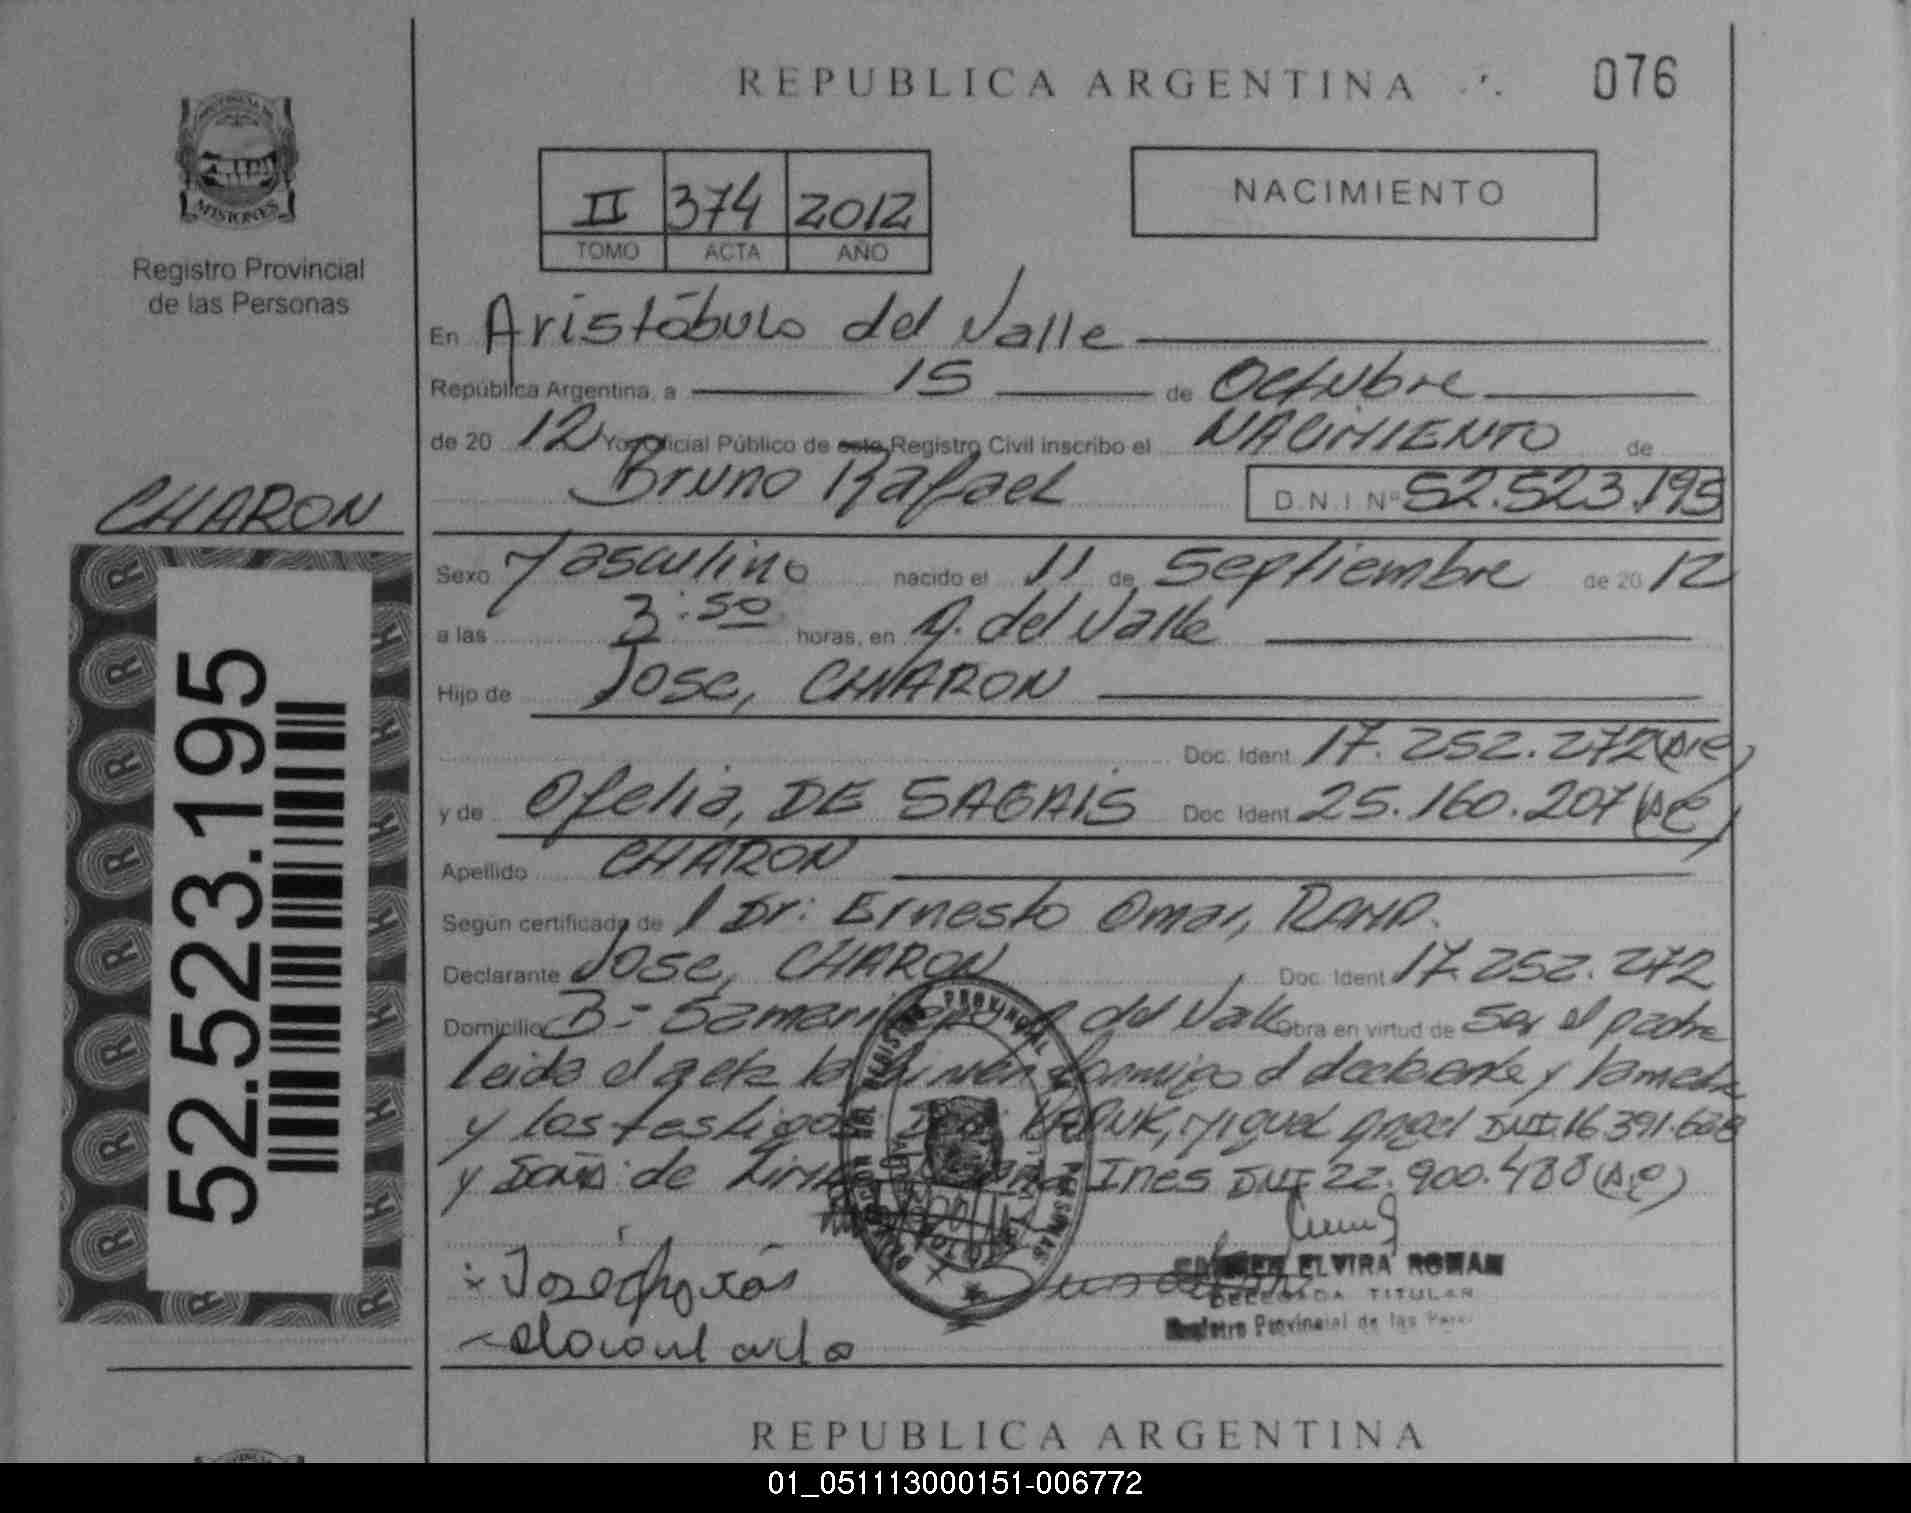 REPUBLICA ARGENTINA
076
MISIONES
Registro Provincial
de las Personas
II 374 2012
TOMO ACTA AÑO
NACIMIENTO
En Aristóbulo del Valle
República Argentina, a 15 de Octubre
de 20 12 Yo, Oficial Público de este Registro Civil inscribo el NACIMIENTO de
Bruno Rafael D.N.I Nº 52.523.195
CHARON
Sexo Masculino nacido el 11 de Septiembre de 20 12
a las 3:50 horas, en A. del Valle
Hijo de Jose, CHARON
Doc. Ident. 17.252.272
y de Ofelia, DE Doc. Ident. 25.160.207
Apellido CHARON
Según certificado de Dr: Ernesto Omar,
Declarante Jose, CHARON Doc. Ident. 17.252.272
Domicilio del Valle Obra en virtud de Ser el padre
leida el acta la conmigo el declarante y la madre
y los testigos Miguel Angel DNI 16.391.
y Doña: de Ines DNI 22.900.488
52.523.195
ELVIRA ROMAN
DELEGADA TITULAR
Registro Provincial de las
REPUBLICA ARGENTINA
01_051113000151-006772